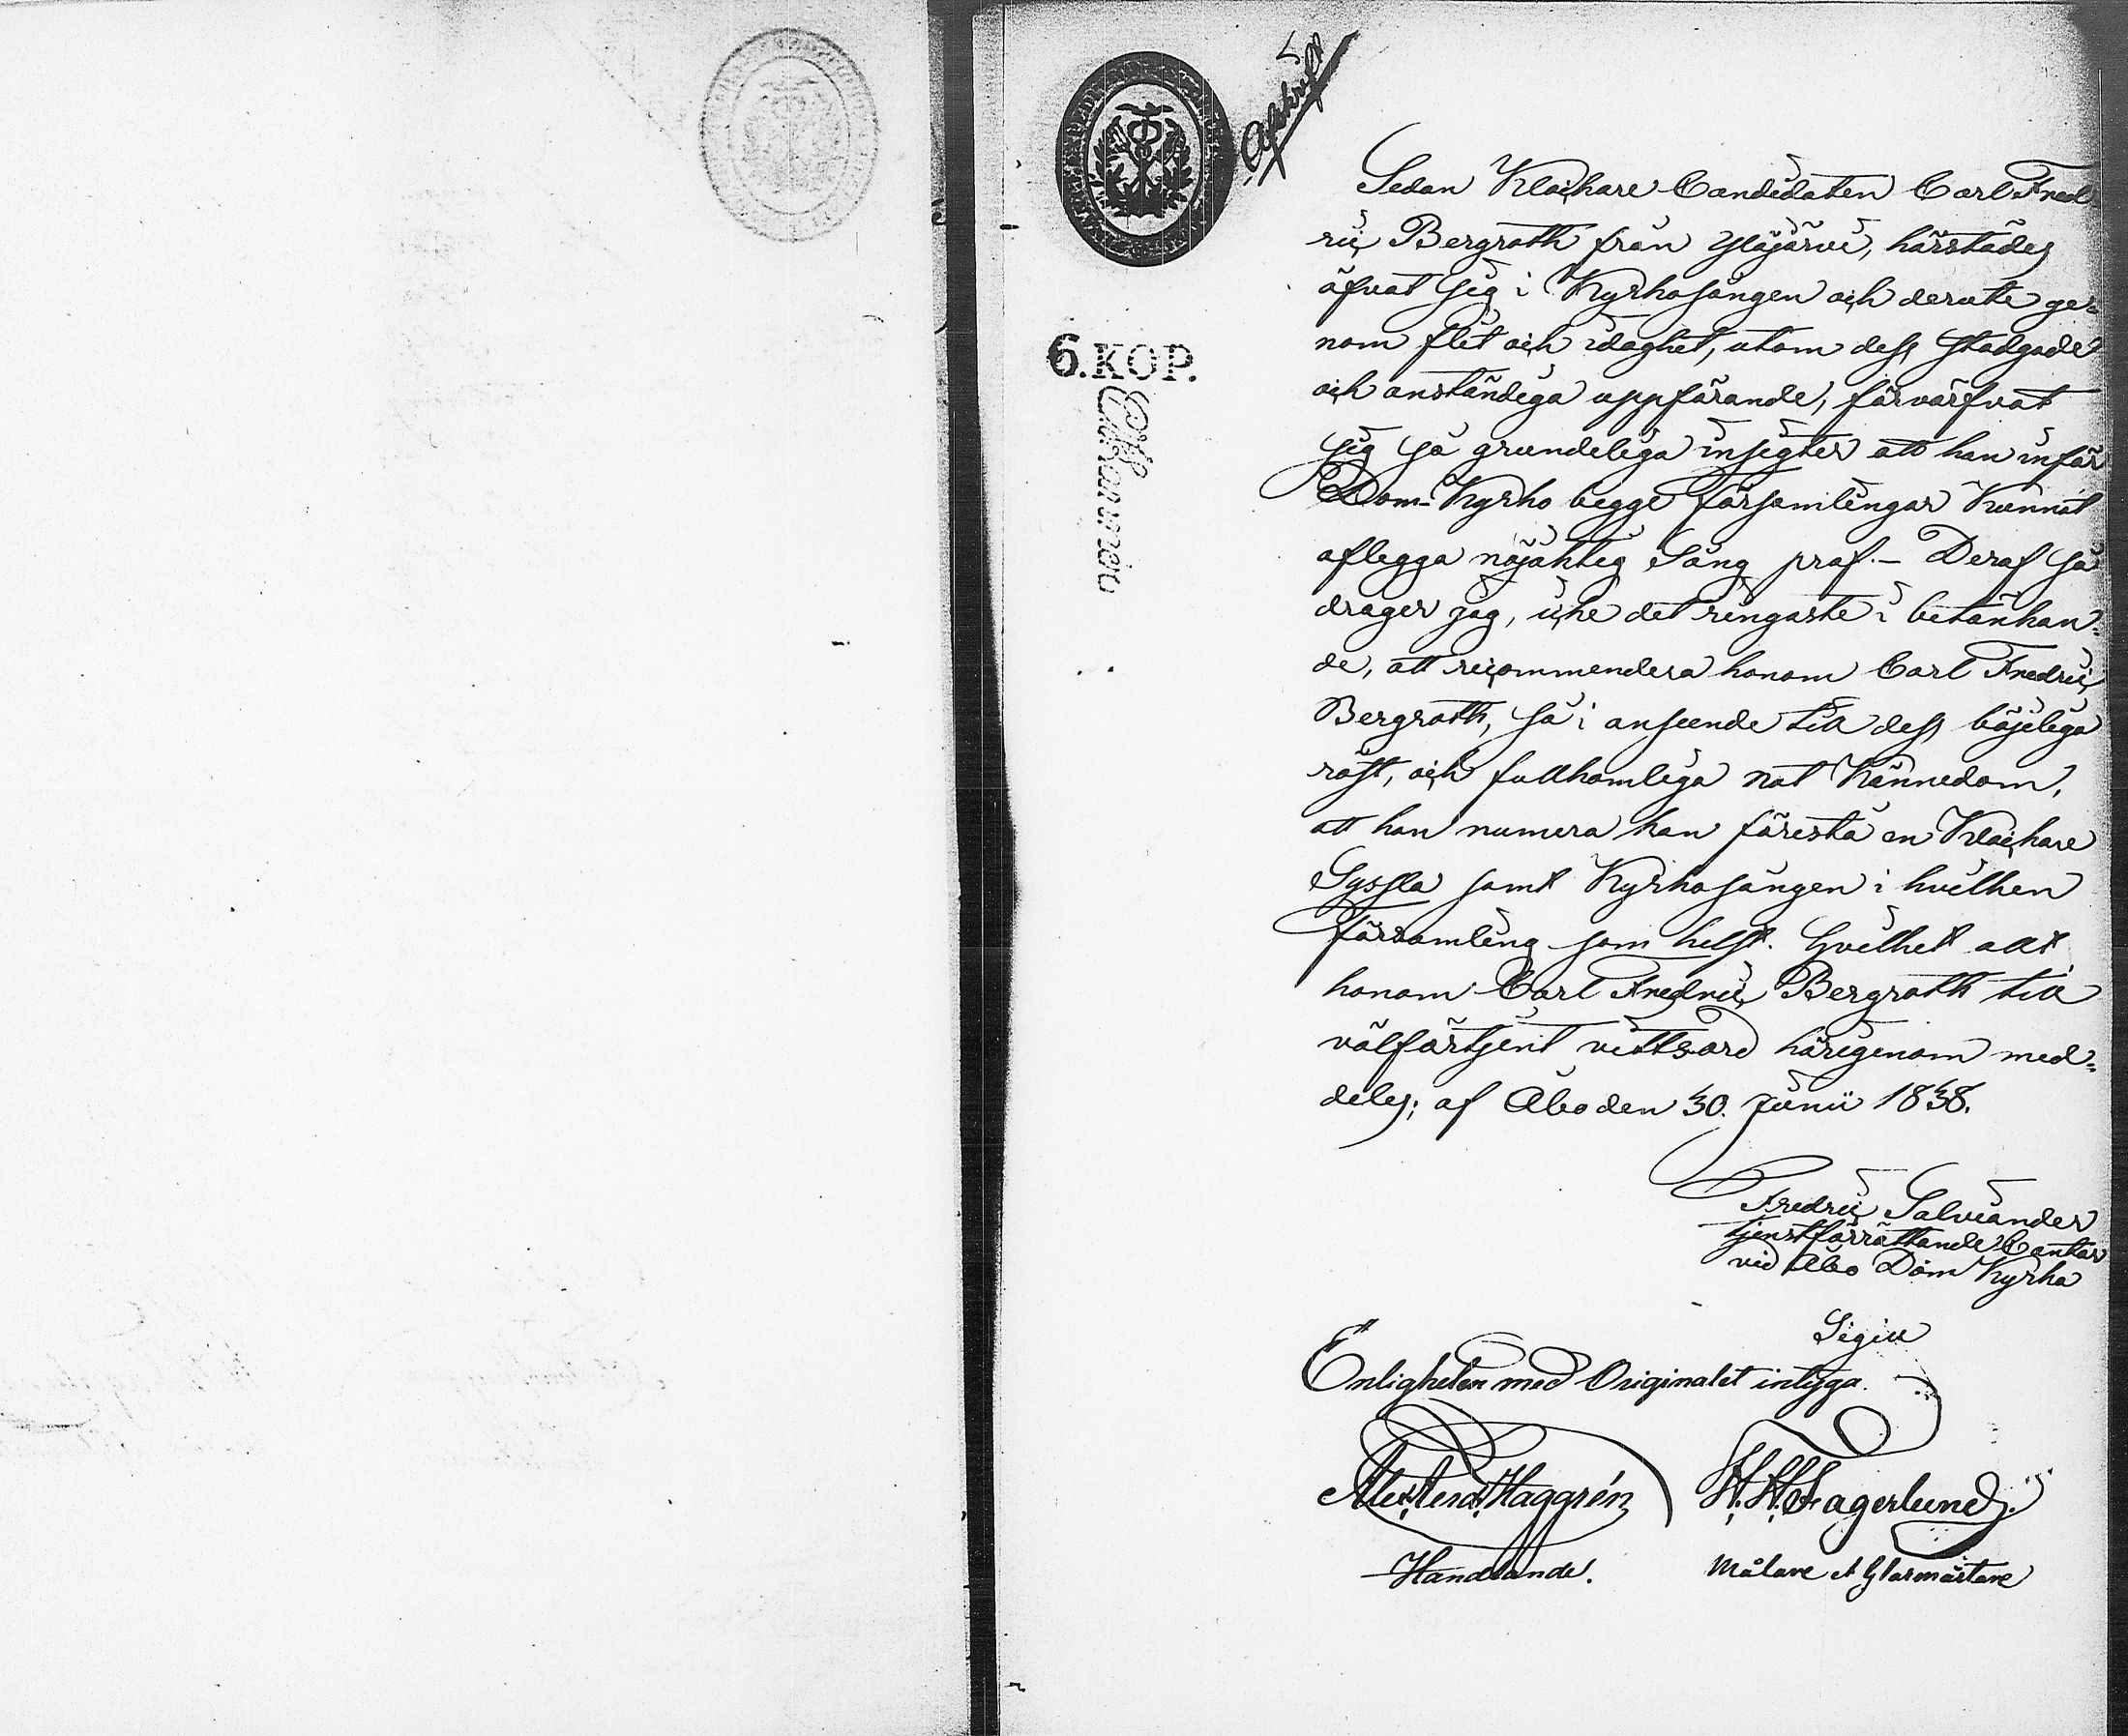 Afskrift
6. KOP.
Sedan Klockare Candidaten Carl Fred
ric Bergroth från Ylöjärvi, härstädes
öfvat sig i Kyrkosången och derute ge=
nom flit och idoghet, utom dess stadgade
och anständiga uppförande, förvärfvat
sig så grundeliga insigter att han inför
Dom-Kyrko begge församlingar kunnat
aflegga nöjaktig Sång prof. – Deraf så
drager jag, icke det ringaste i betänkan=
de, att recommendera honom Carl Fredric
Bergroth, så i anseende till dess böjeliga
röst, och fullkomliga not Kännedom,
att han numera kan förestå en Klockare
Syssla samt Kyrkosången i hvilken
församling som helst. Hvilket allt
honom Carl Fredric Bergroth till
välförtjent vittsord härigenom med=
deles; af Åbo den 30. Junii 1838.
Fredric Salviander
tjenstförrättande Cantor
vid Åbo Dom Kyrka
Sigill
Enligheten med Originalet intyga.
Haggrén H. H. Fagerlund.
Handlande. Målare et Glasmästare